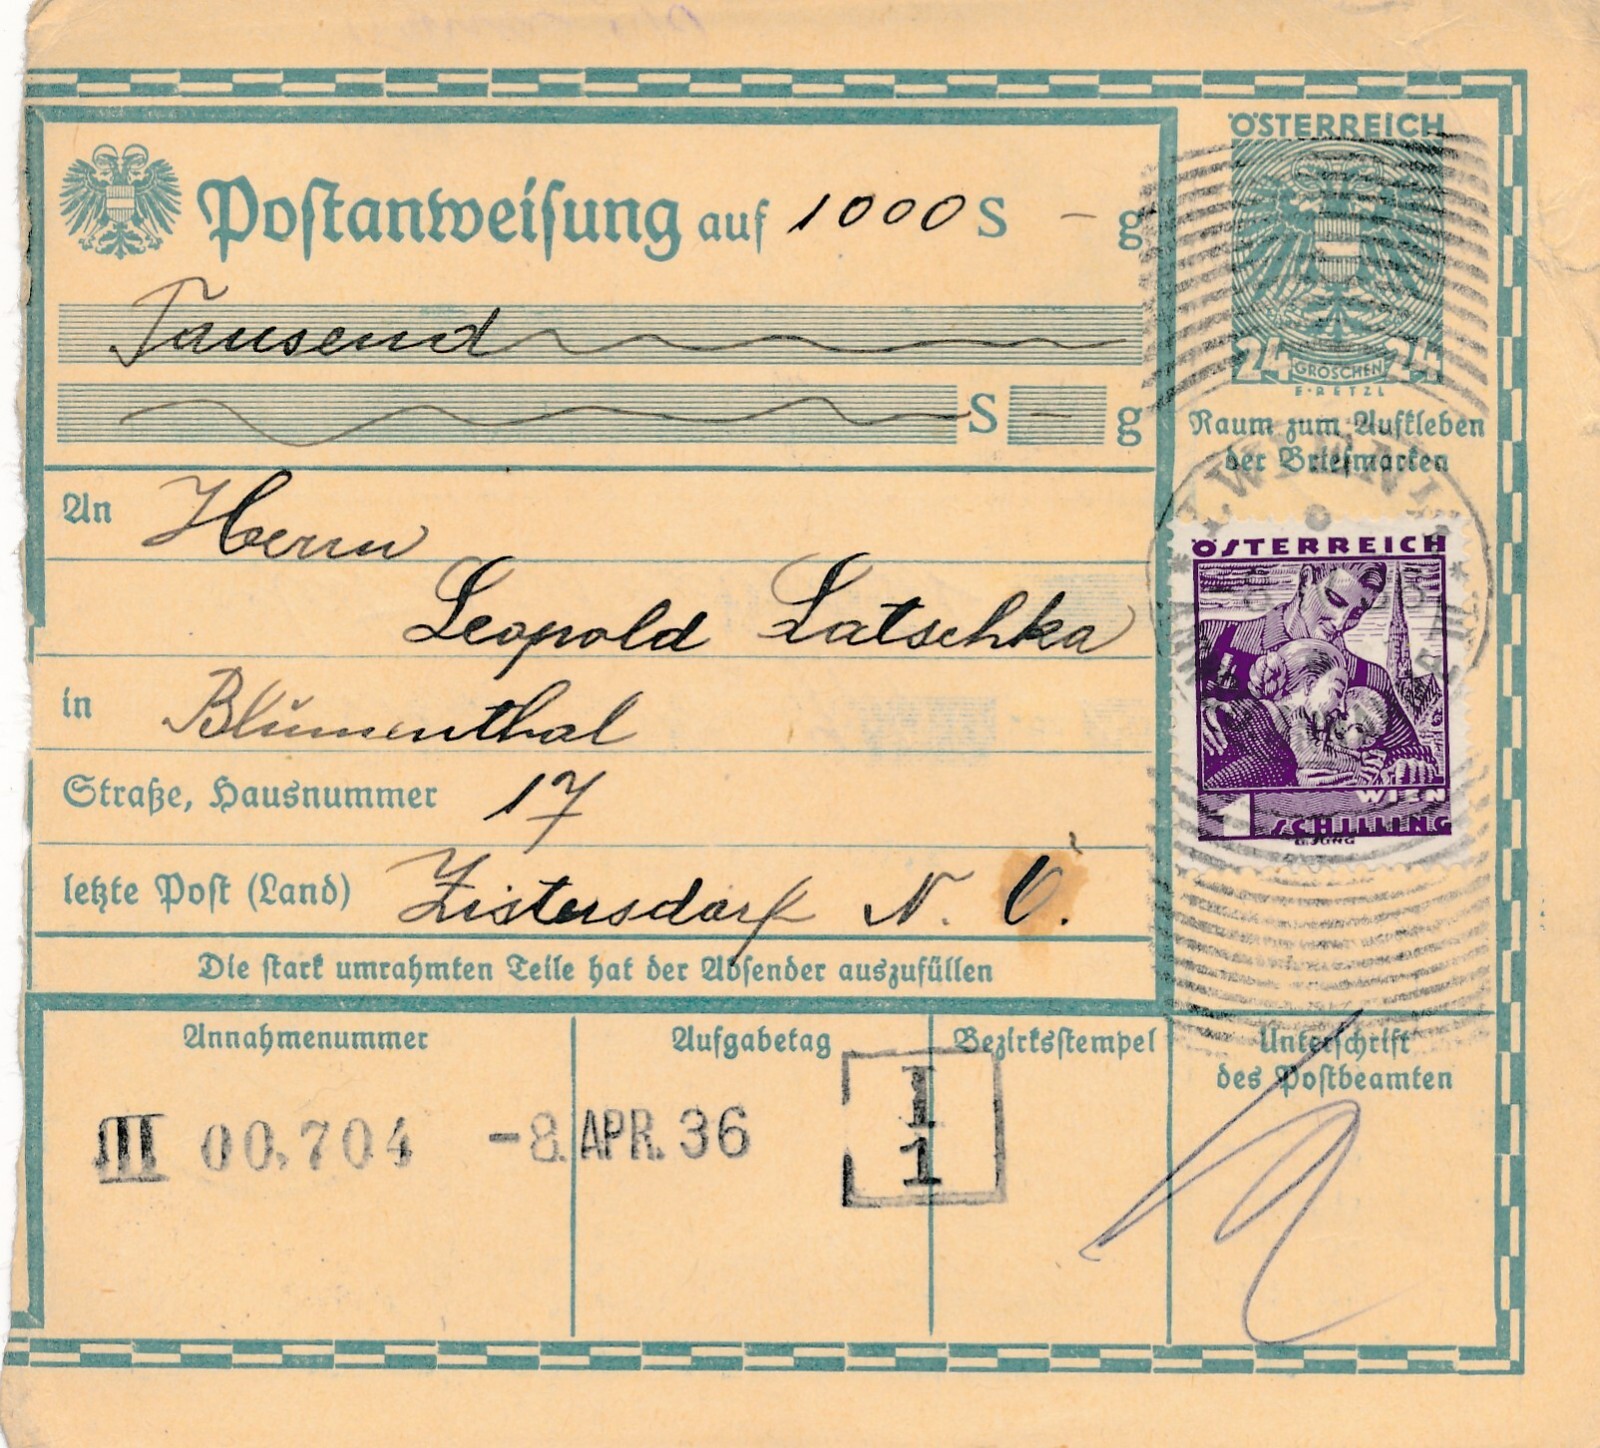 Postanweisung auf 1000 S - g
Tausend
S - g
An Herrn
Leopold Latschka
in Blumenthal
Straße, Hausnummer 17
letzte Post (Land) Zistersdorf N. Ö.
Die stark umrahmten Teile hat der Absender auszufüllen
ÖSTERREICH
24 GROSCHEN 24
E·RETZL
Raum zum Aufkleben
der Briefmarken
ÖSTERREICH
WIEN
1 SCHILLING
Annahmenummer
III 00,704
Aufgabetag
-8. APR. 36
Bezirksstempel
I
1
Unterschrift
des Postbeamten